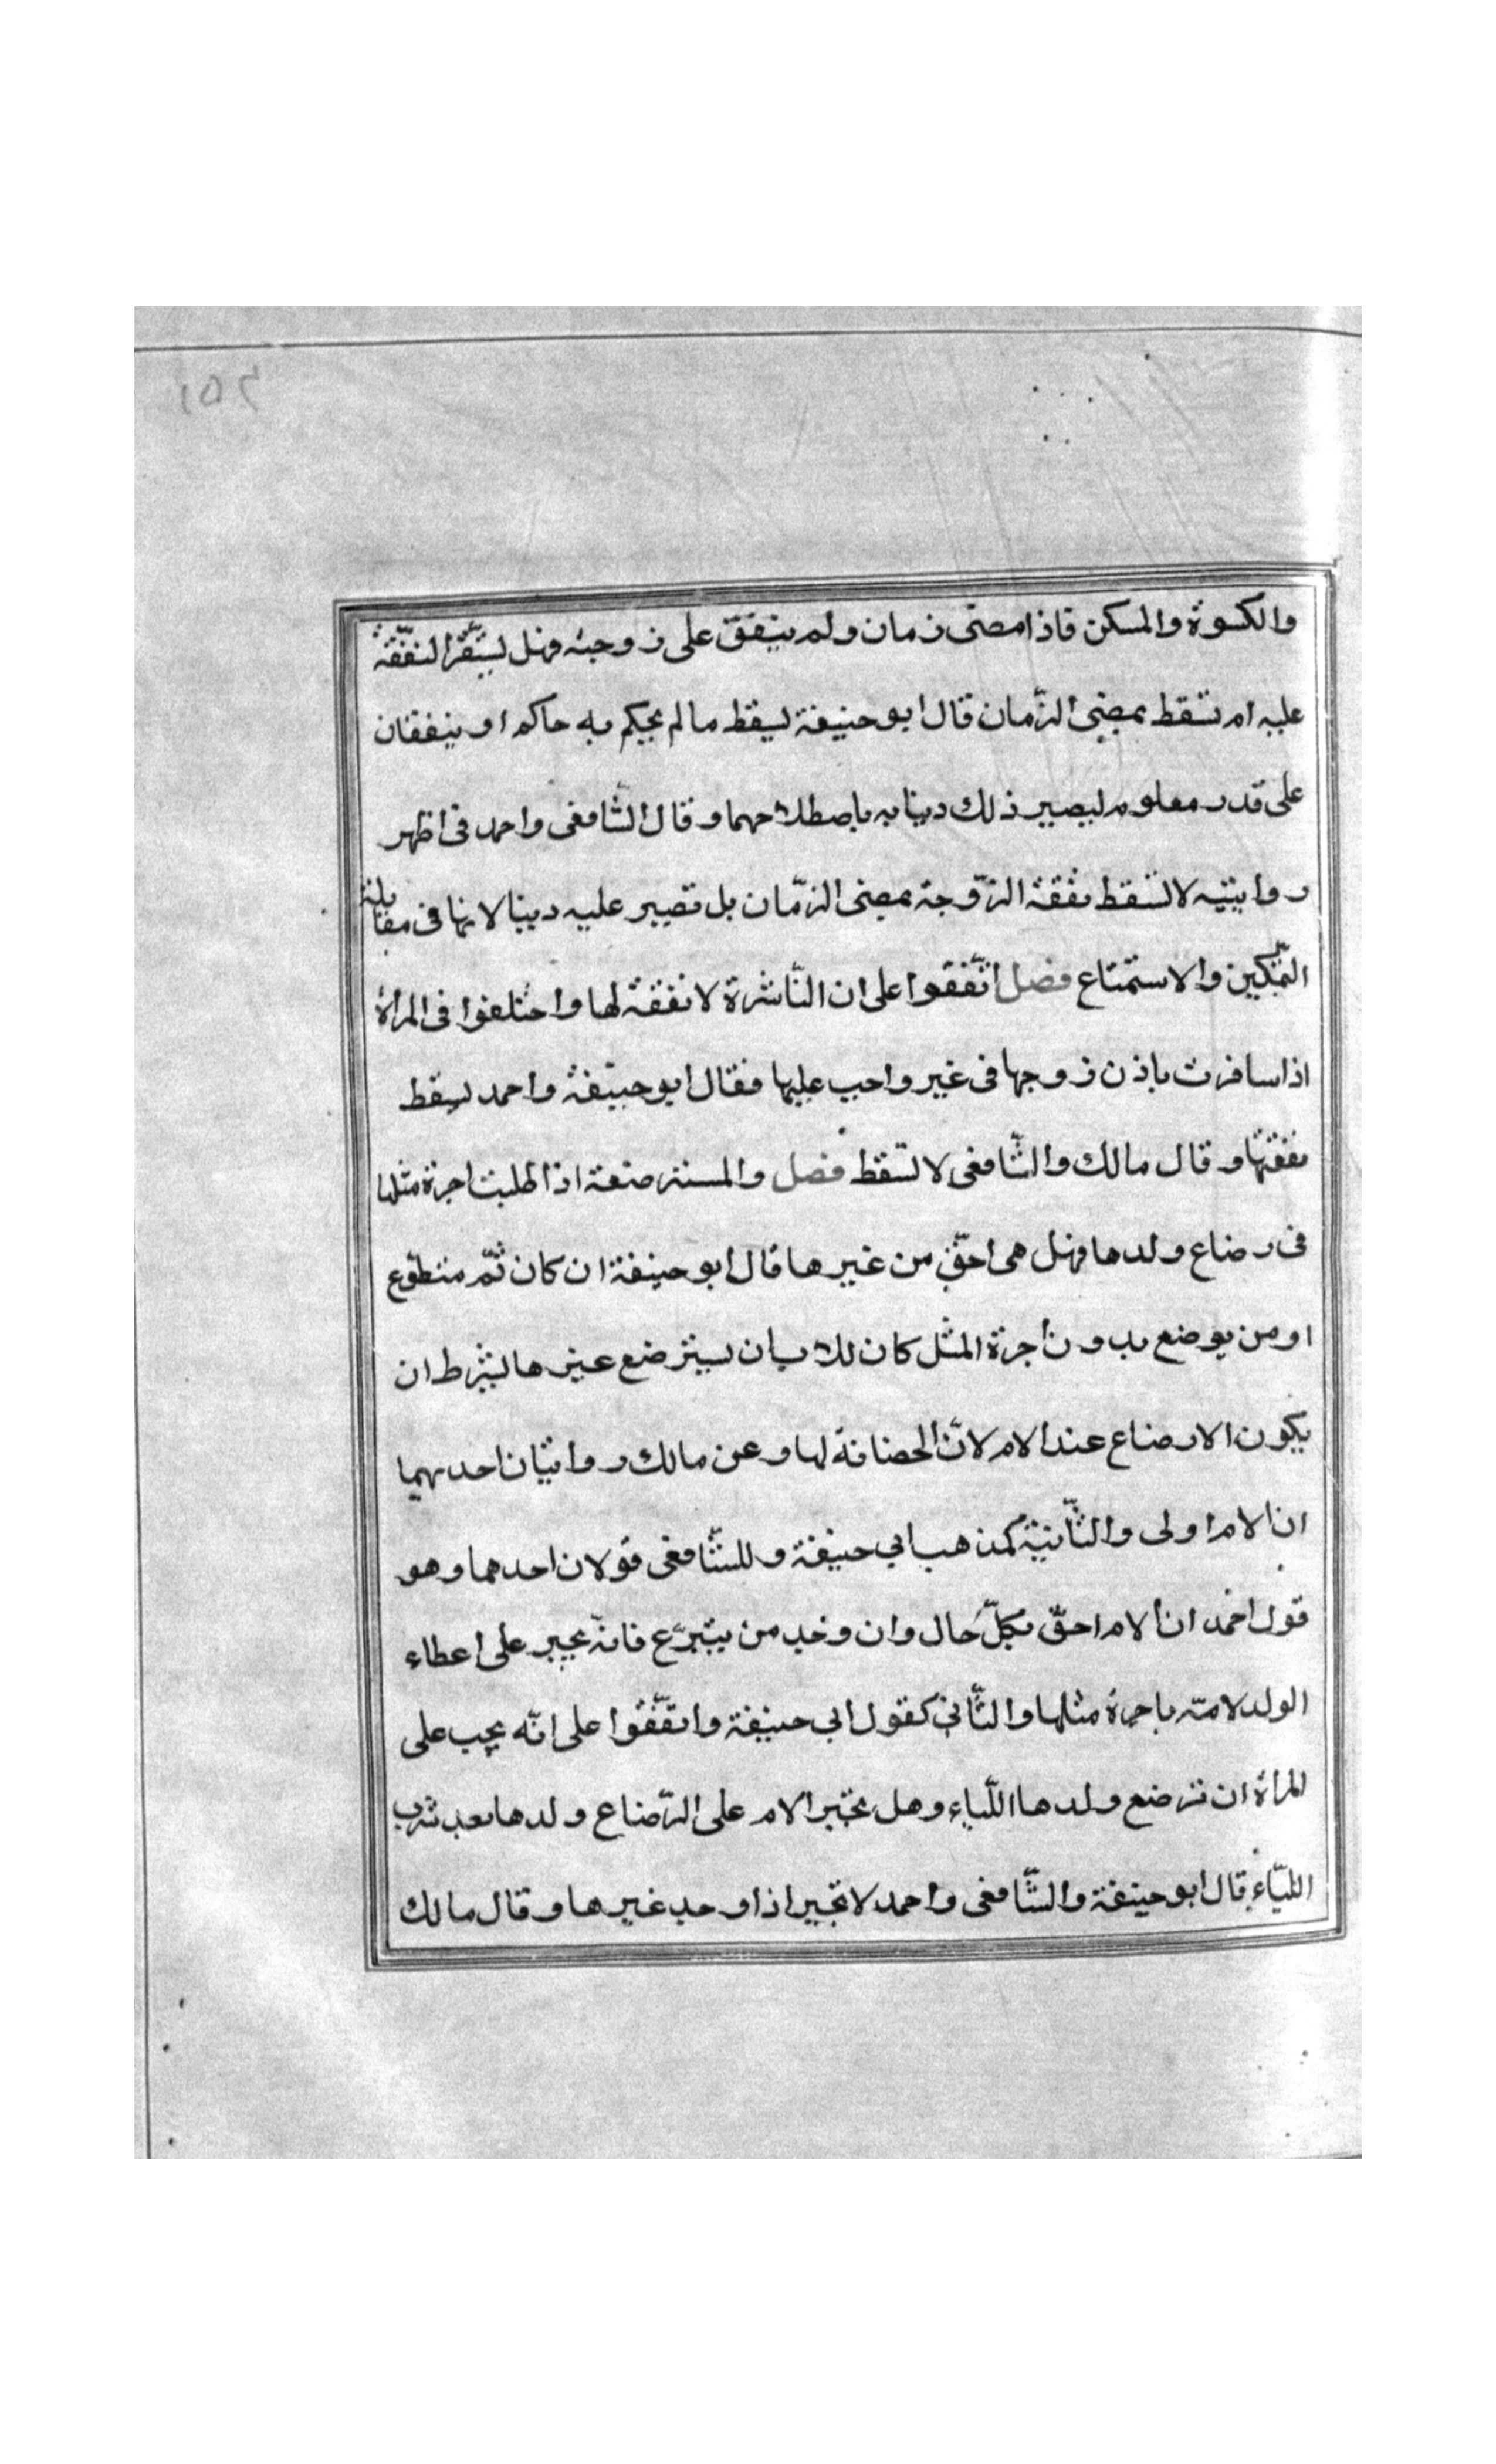 ١٥٢
والكسوة والمسكن فاذا مضى زمان ولم ينفق على زوجته فهل تستقر النفقة
عليه ام تسقط بمضى الزمان قال ابو حنيفة يسقط مالم يحكم به حاكم او يتفقان
على قدر معلوم ليصير ذلك دينا به باصطلاحهما وقال الشافعى واحمد فى اظهر
روايتيه لا تسقط نفقة الزوجة بمضى الزمان بل تصير عليه دينا لانها فى مقابلة
التمكين والاستمتاع فصل اتفقوا على ان الناشزة لا نفقة لها واختلفوا فى المرأة
اذا سافرت باذن زوجها فى غير واجب عليها فقال ابو حنيفة واحمد تسقط
نفقتها وقال مالك والشافعى لا تسقط فصل والمسترضعة اذا طلبت اجرة مثلها
فى رضاع ولدها فهل هى احق من غيرها قال ابو حنيفة ان كان ثم متطوع
او من يوضع بدون أجرة المثل كان للاب ان يسترضع غيرها بشرط ان
يكون الارضاع عند الام لان الحضانة لها وعن مالك روايتان احديهما
ان الام اولى والثانية كمذهب ابي حنيفة وللشافعى قولان احدهما وهو
قول احمد ان الام احق بكل حال وان وجد من يتبرع فانه يجبر على اعطاء
الولد لامته باجرة مثلها والثاني كقول ابي حنيفة واتفقوا على انه يجب على
المرأة ان ترضع ولدها اللباء وهل تجبر الام على الرضاع ولدها بعد شرب
اللباء قال ابو حنيفة والشافعى واحمد لا تجبر اذا وجد غيرها وقال مالك